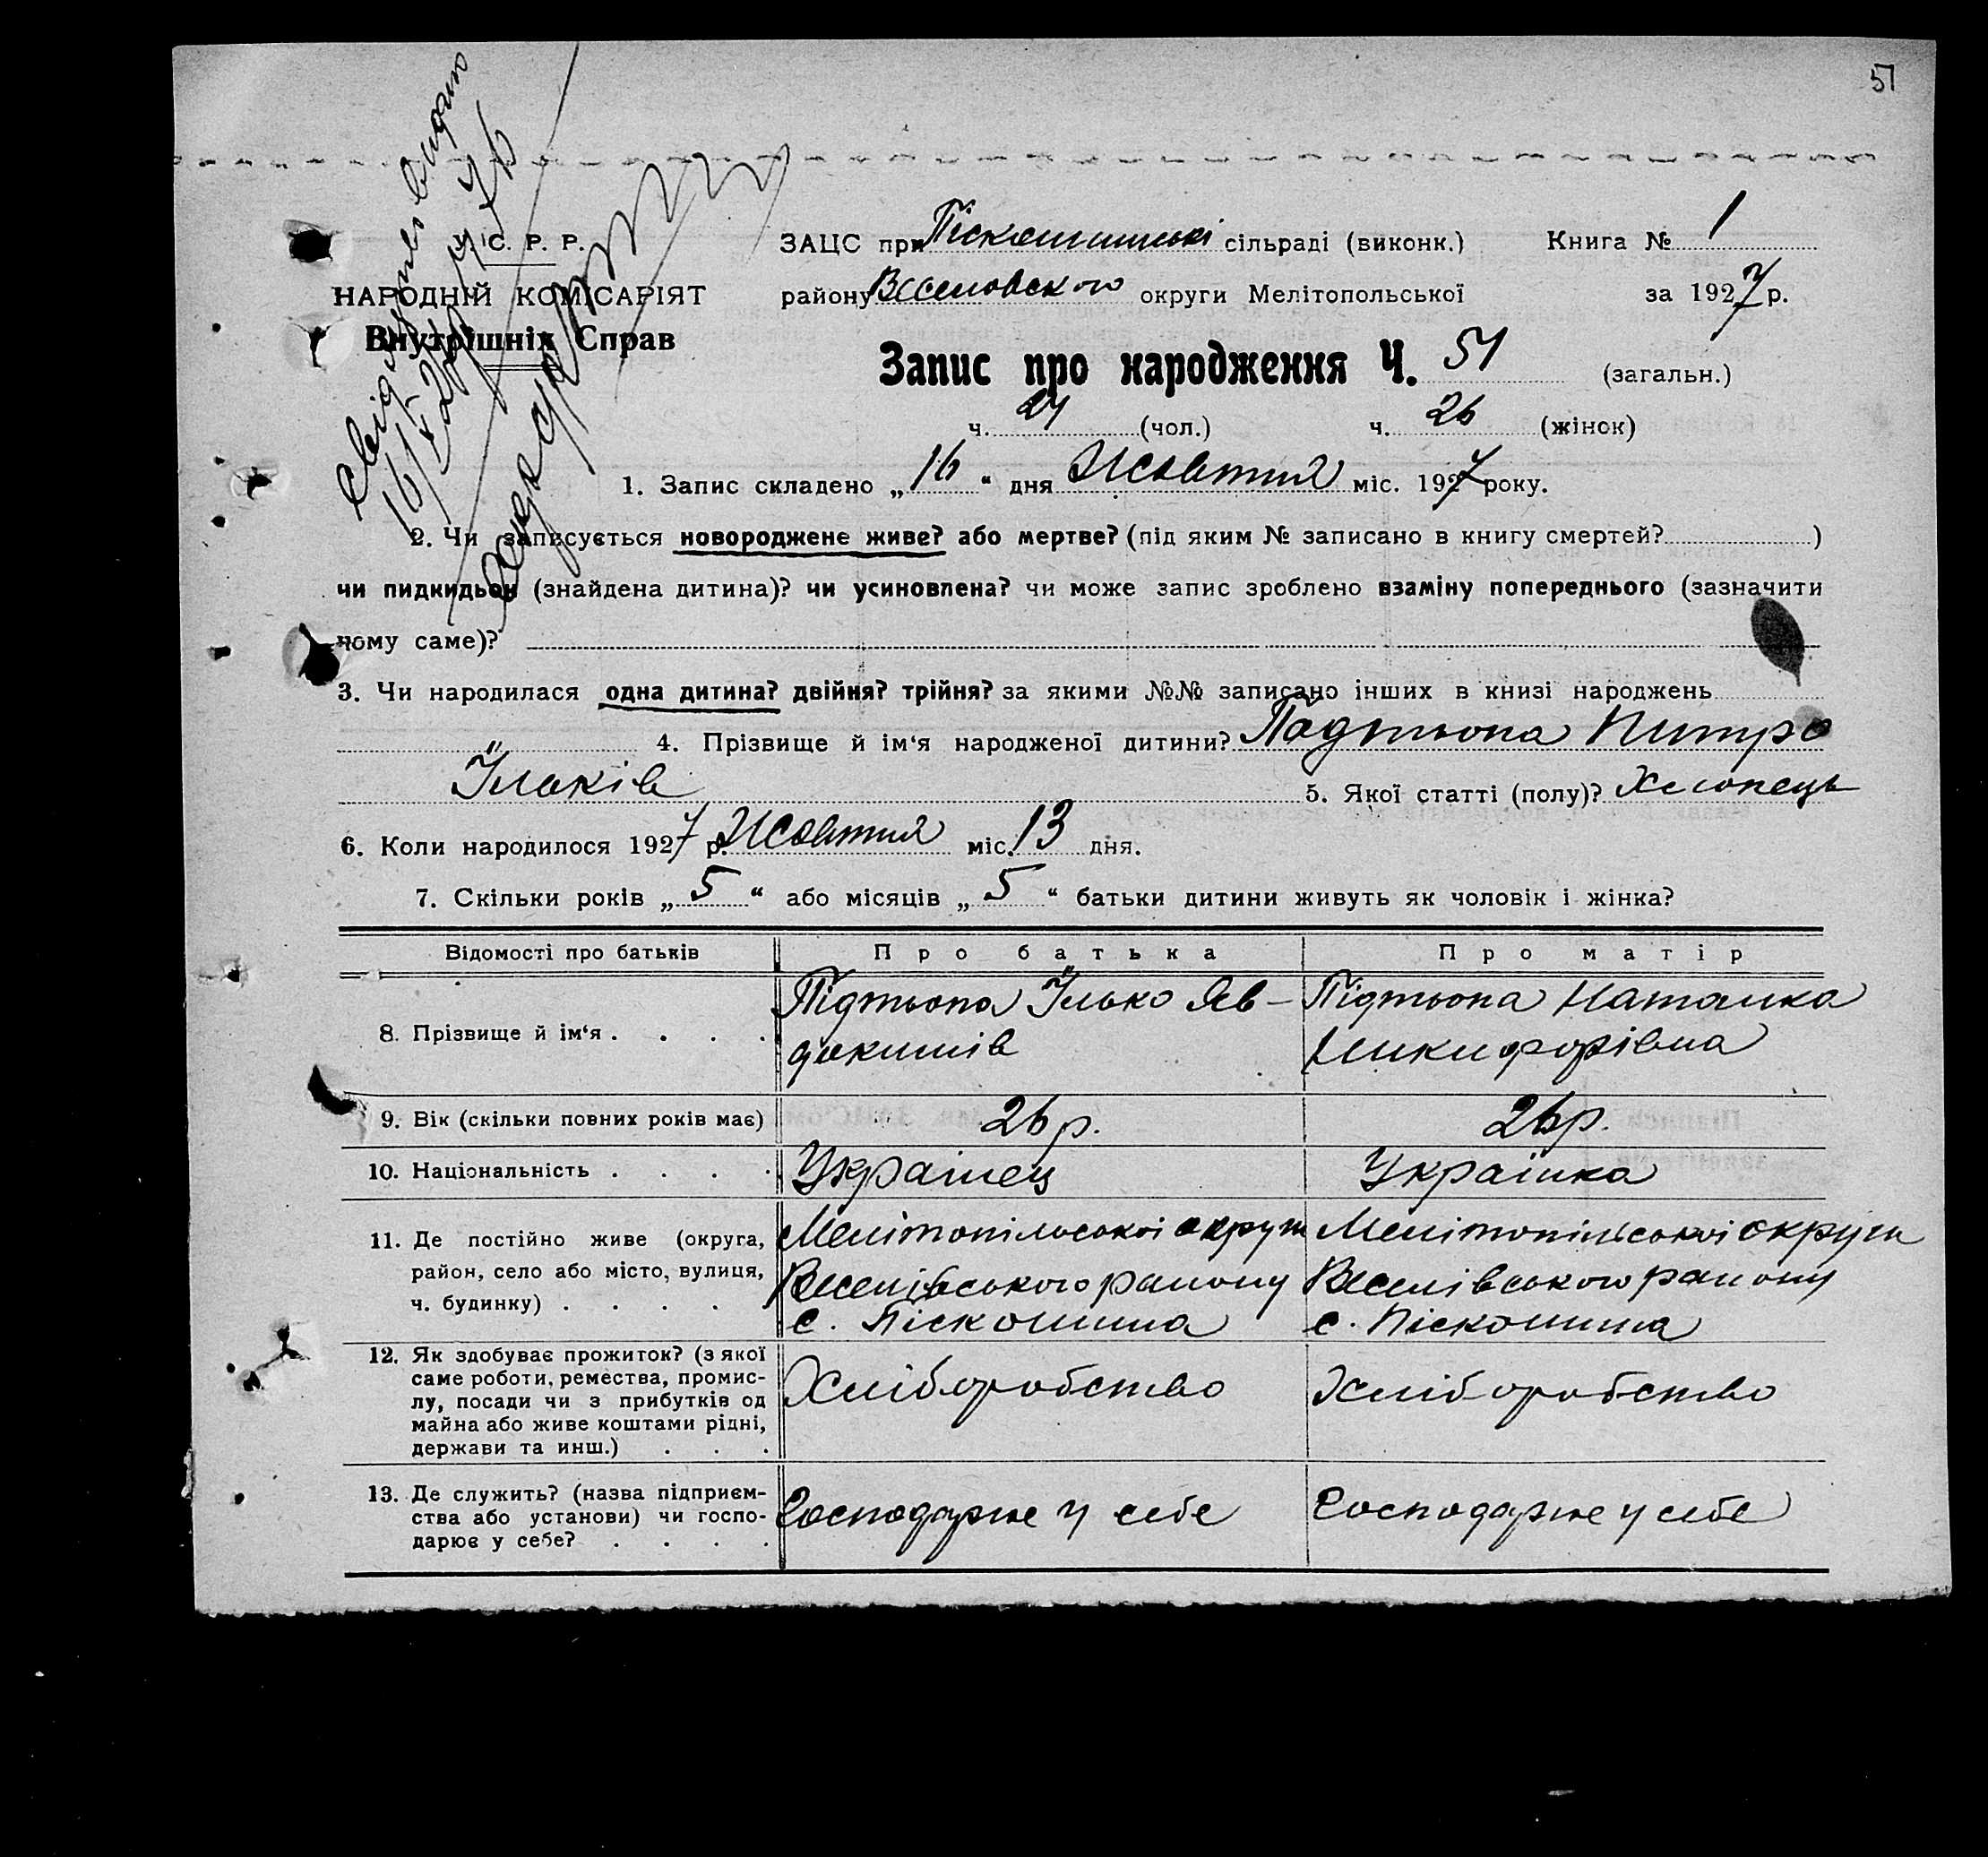 51
Свідоцтво видано
16/X 27 р. ч. 26
У. С. Р. Р.
НАРОДНІЙ КОМІСАРІЯТ
Внутрішніх Справ
ЗАЦС при Піскошинські сільраді (виконк.) Книга № 1
району Веселовского округи Мелітопольської за 1927 р.
Запис про народження Ч. 51 (загальн.)
ч. (чол.) ч. 26 (жінок)
1. Запис складено „16“ дня Жовтня міс. 1927 року.
2. Чи записується новороджене живе? або мертве? (під яким № записано в книгу смертей? )
чи пидкидьок (знайдена дитина)? чи усиновлена? чи може запис зроблено взаміну попереднього (зазначити
чому саме)?
3. Чи народилася одна дитина? двійня? трійня? за якими №№ записано інших в книзі народжень
" 4. Прізвище й ім‘я народженої дитини? Падтьопа Питро
Ільків 5. Якої статті (полу)? Хлопець
6. Коли народилося 1927 р. Жовтня міс. 13 дня.
7. Скільки років „5“ або місяців „5“ батьки дитини живуть як чоловік і жінка?
Відомості про батьків Про батька Про матір
8. Прізвище й ім‘я . . . . Підтьопа Їлько Яв- Підтьопа Наталка
докимів Никифорівна
9. Вік (скільки повних років має) 26 р. 26 р.
10. Національність . . . . Українец Українка
11. Де постійно живе (округа, Мелітопільської округи Мелітопільської округи
район, село або місто, вулиця, Веселівського району Веселівського району
ч. будинку) . . . . с. Піскошина с. Піскошина
12. Як здобуває прожиток? (з якої
саме роботи, ремества, промис- Хліборобство Хліборобство
лу, посади чи з прибутків од
майна або живе коштами рідні,
держави та инш.) . . .
13. Де служить? (назва підприєм-
ства або установи) чи госпо- Господарює у себе Господарює у себе
дарює у себе? . . . .